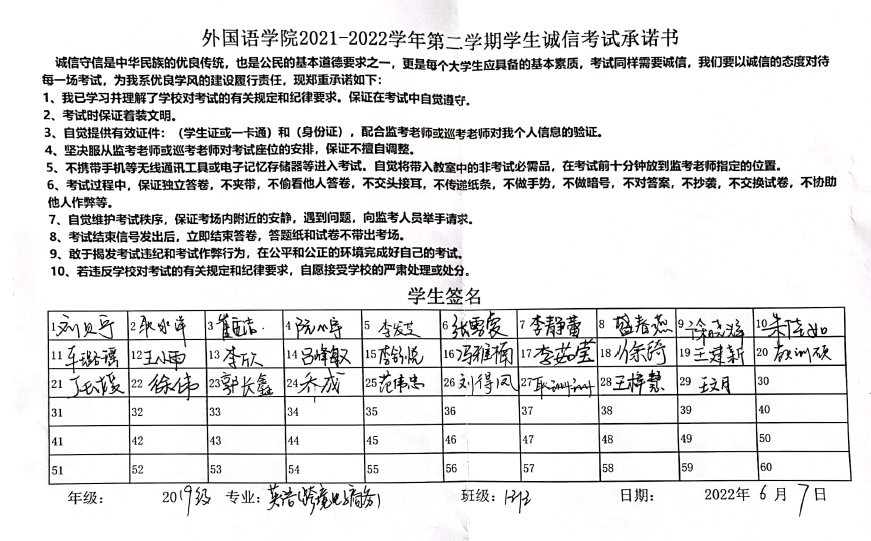 外国语学院2021-2022学年第二学期学生诚信考试承诺书
诚信守信是中华民族的优良传统，也是公民的基本道德要求之一，更是每个大学生应具备的基本素质，考试同样需要诚信，我们要以诚信的态度对待
每一场考试，为我系优良学风的建设履行责任，现郑重承诺如下：
1、我已学习并理解了学校对考试的有关规定和纪律要求。保证在考试中自觉遵守。
2、考试时保证着装文明。
3、自觉提供有效证件：（学生证或一卡通）和（身份证），配合监考老师或巡考老师对我个人信息的验证。
4、坚决服从监考老师或巡考老师对考试座位的安排，保证不擅自调整。
5、不携带手机等无线通讯工具或电子记忆存储器等进入考试。自觉将带入教室中的非考试必需品，在考试前十分钟放到监考老师指定的位置。
6、考试过程中，保证独立答卷，不夹带，不偷看他人答卷，不交头接耳，不传递纸条，不做手势，不做暗号，不对答案，不抄袭，不交换试卷，不协助
他人作弊等。
7、自觉维护考试秩序，保证考场内附近的安静，遇到问题，向监考人员举手请求。
8、考试结束信号发出后，立即结束答卷，答题纸和试卷不带出考场。
9、敢于揭发考试违纪和考试作弊行为，在公平和公正的环境完成好自己的考试。
10、若违反学校对考试的有关规定和纪律要求，自愿接受学校的严肃处理或处分。
学生签名
1 刘贝宁 2 3 4 5 6 7 李静蕾 8 盛春燕 9 10 朱佳如
11 车璐瑶 12 王小雨 13 李欣 14 吕峰敏 15 16 冯雅楠 17 李茹莹 18 徐琦 19 王建新 20
21 22 徐伟 23 郭长鑫 24 乔成 25 范伟忠 26 刘得凤 27 28 王梓慧 29 王文月 30
31 32 33 34 35 36 37 38 39 40
41 42 43 44 45 46 47 48 49 50
51 52 53 54 55 56 57 58 59 60
年级： 2019级 专业：英语(跨境电子商务) 班级： 日期： 2022年 6 月 7 日